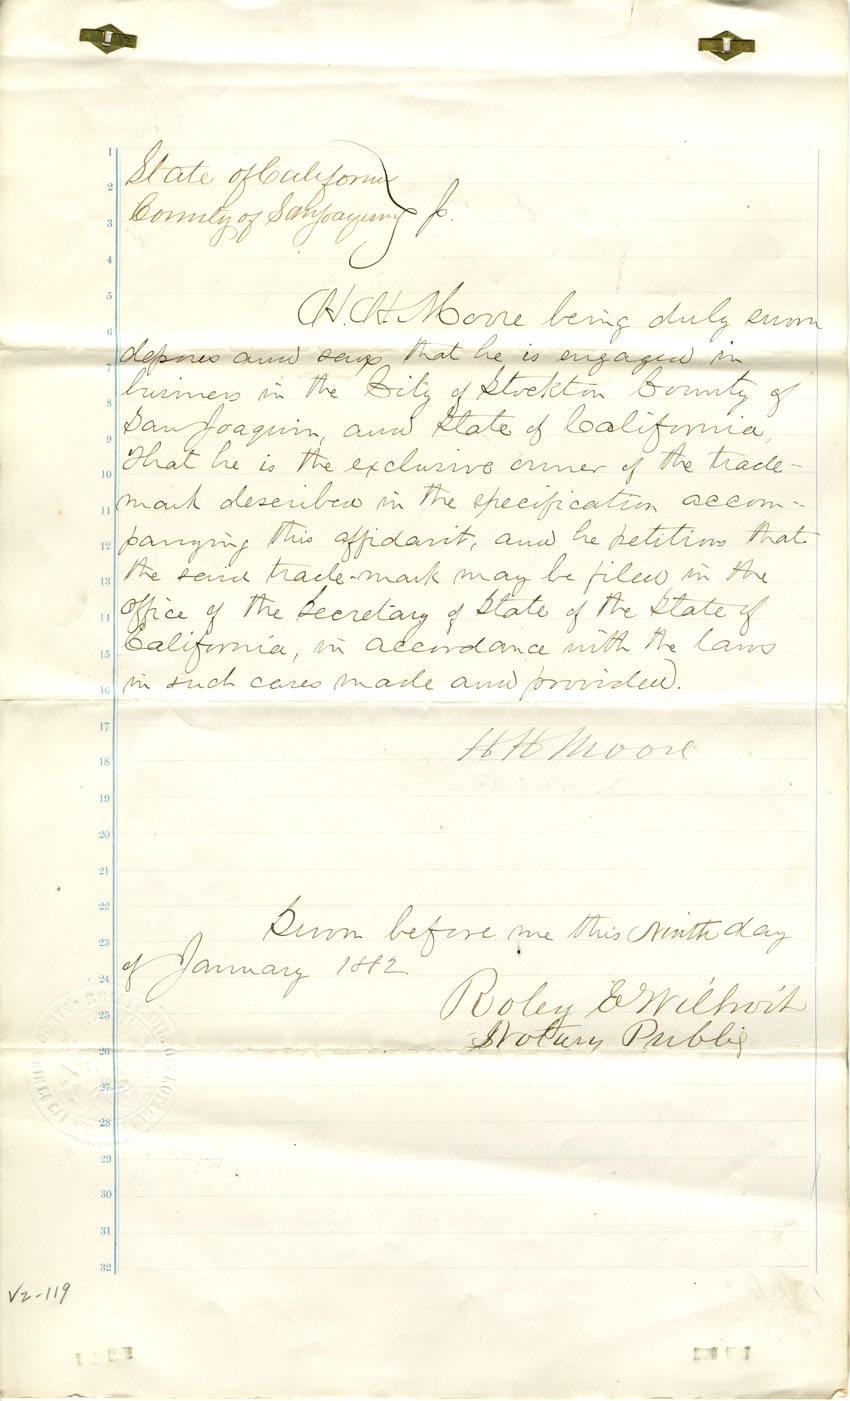 State of California
County of San Joaquin } ss.
H. H. Moore being duly sworn
deposes and says that he is engaged in
business in the City of Stockton County of
San Joaquin, and State of California,
that he is the exclusive owner of the trade-
mark described in the specification accom-
panying this affidavit, and he petitions that
the said trade-mark may be filed in the
office of the Secretary of State of the State of
California, in accordance with the laws
in such cases made and provided.
H H Moore
Sworn before me this Ninth day
of January 1882
Roley E Wilhoit
Notary Public
V2-119
1
2
3
4
5
6
7
8
9
10
11
12
13
14
15
16
17
18
19
20
21
22
23
24
25
26
27
28
29
30
31
32